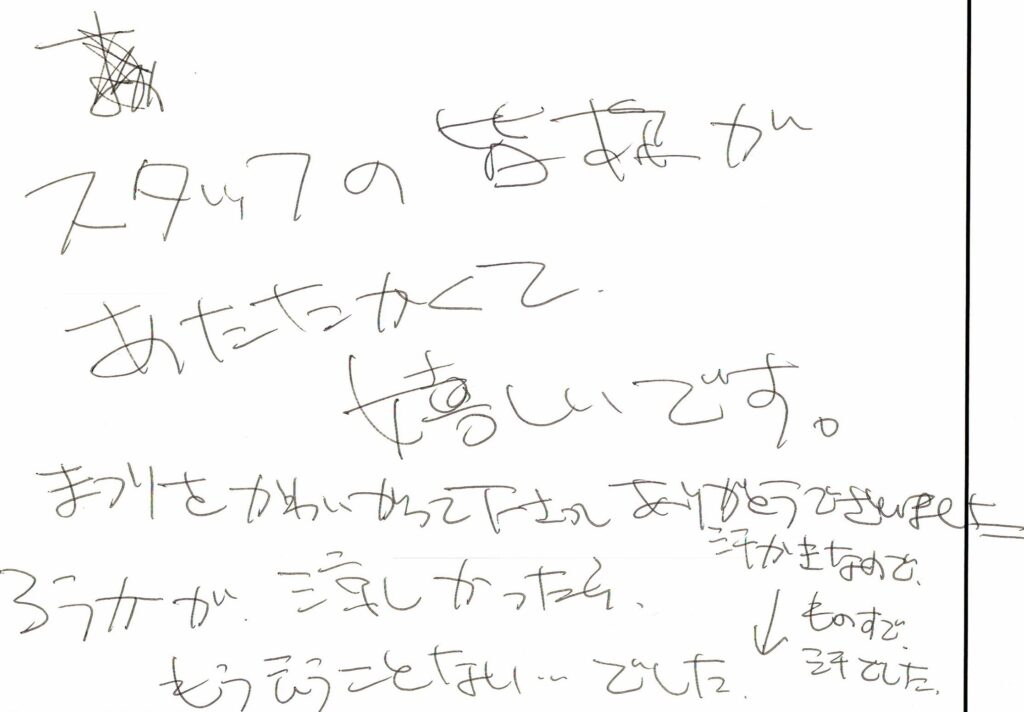 スタッフの皆様が
あたたかくて
嬉しいです。
まつりをかわいがって下さって ありがとうございました
ろうかが、涼しかったら、
もう言うことない…でした。
汗かきなので、
↓ものすご、
汗でした。